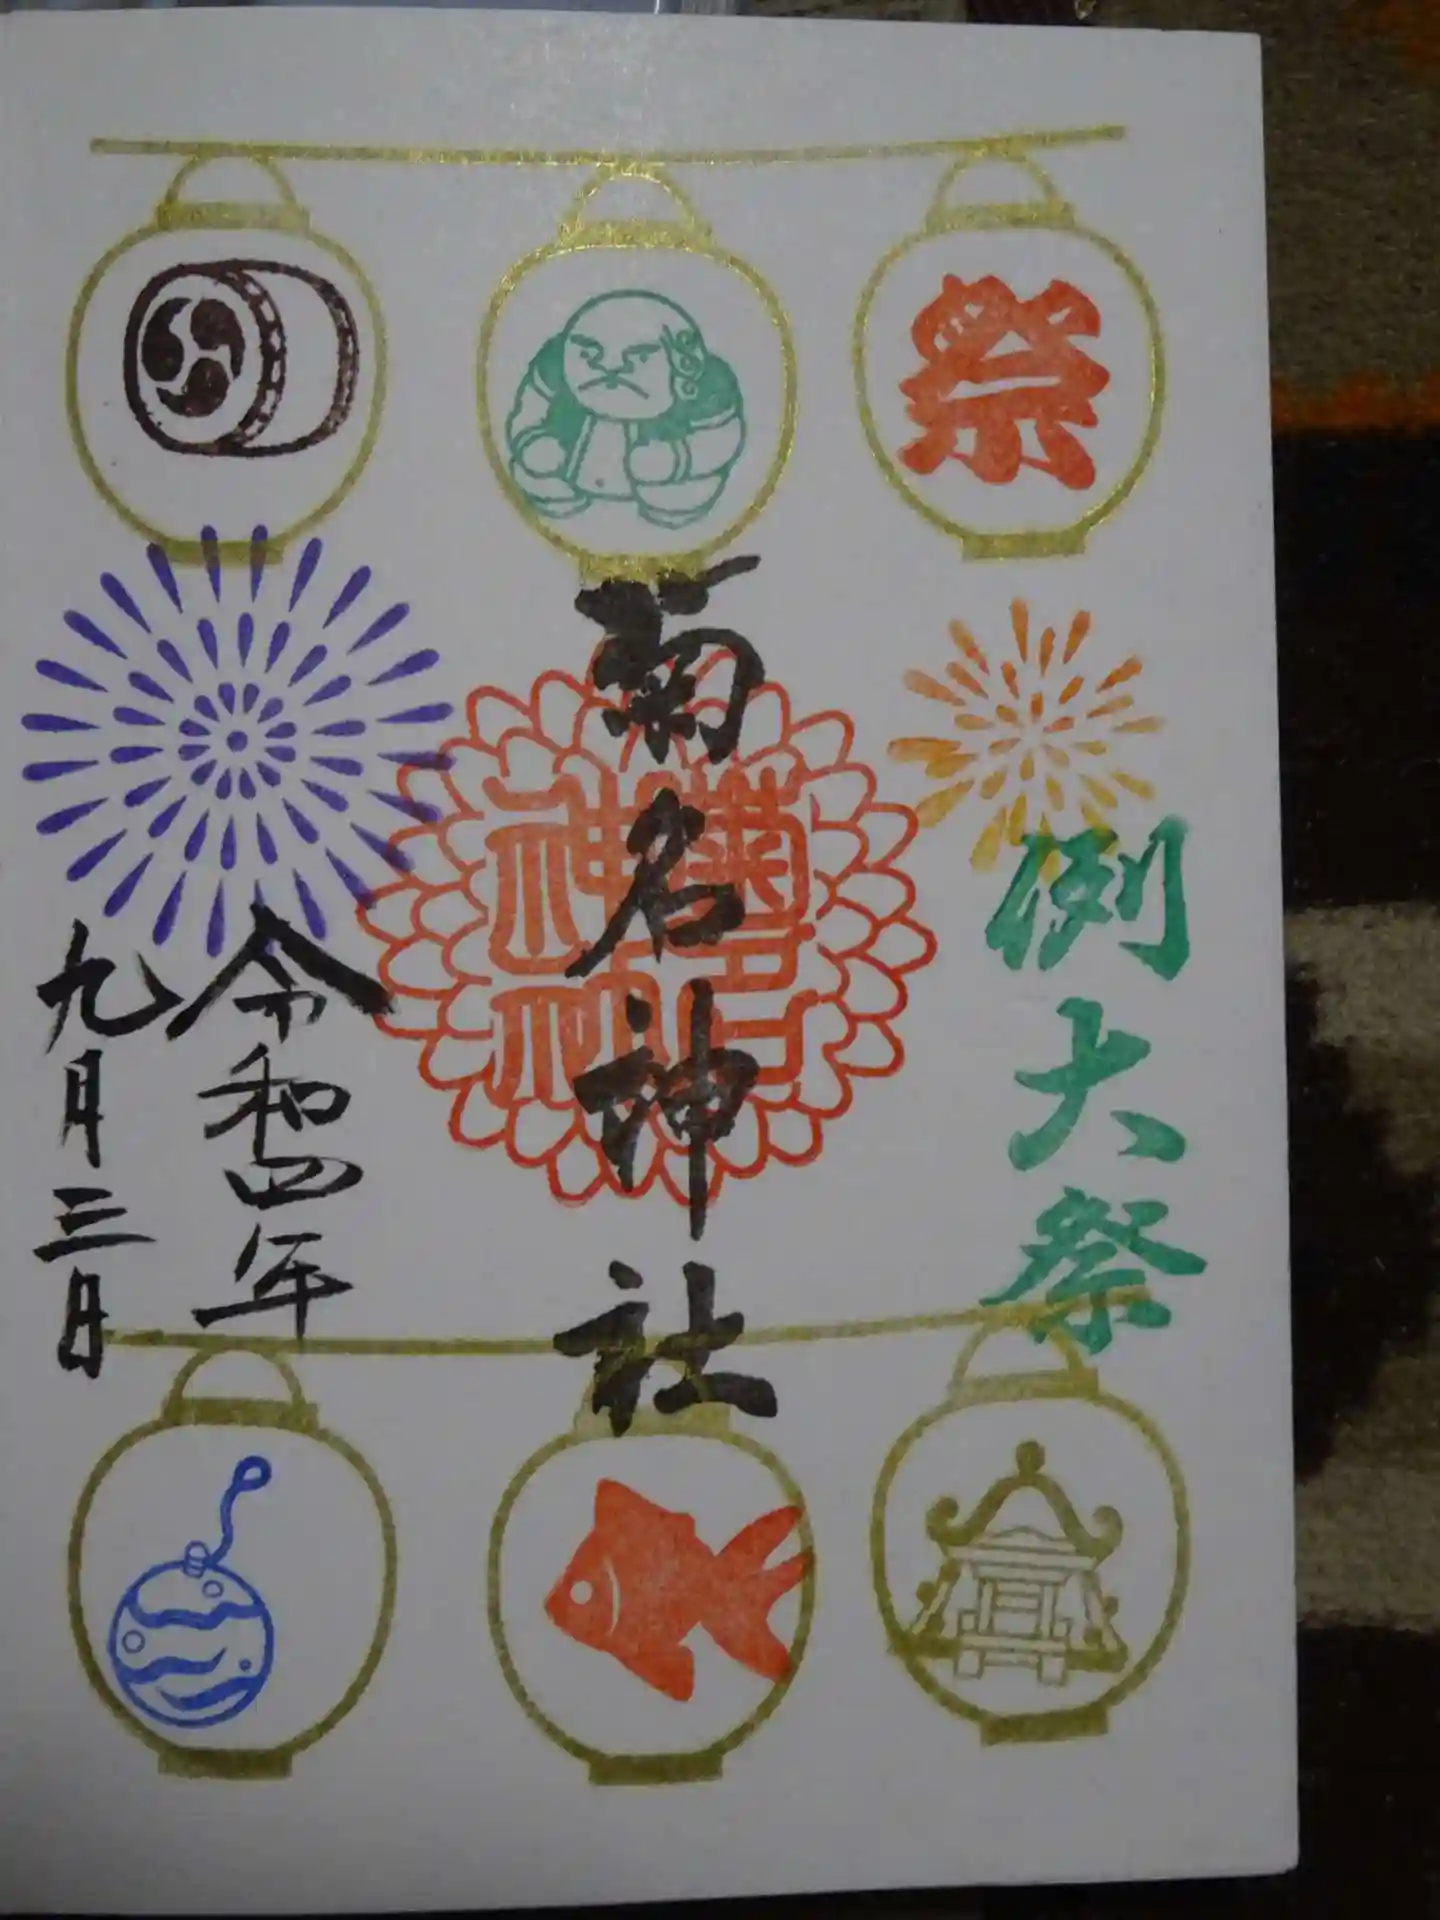 祭
例大祭
菊名神社
菊名神社
令和四年
九月三日